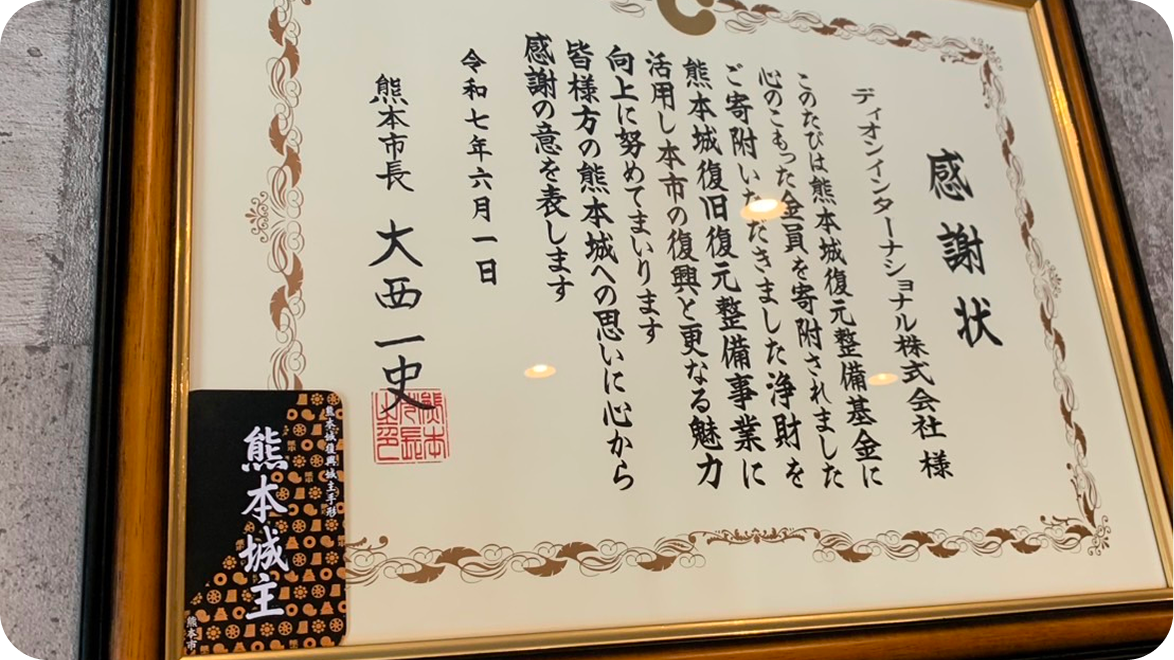 感謝状
ディオンインターナショナル株式会社 様
このたびは熊本城復元整備基金に
心のこもった金員を寄附されました
ご寄附いただきました浄財を
熊本城復旧復元整備事業に
活用し本市の復興と更なる魅力
向上に努めてまいります
皆様方の熊本城への思いに心から
感謝の意を表します
令和七年六月一日
熊本市長 大西一史
熊本城復興城主手形
熊本城主
熊本市